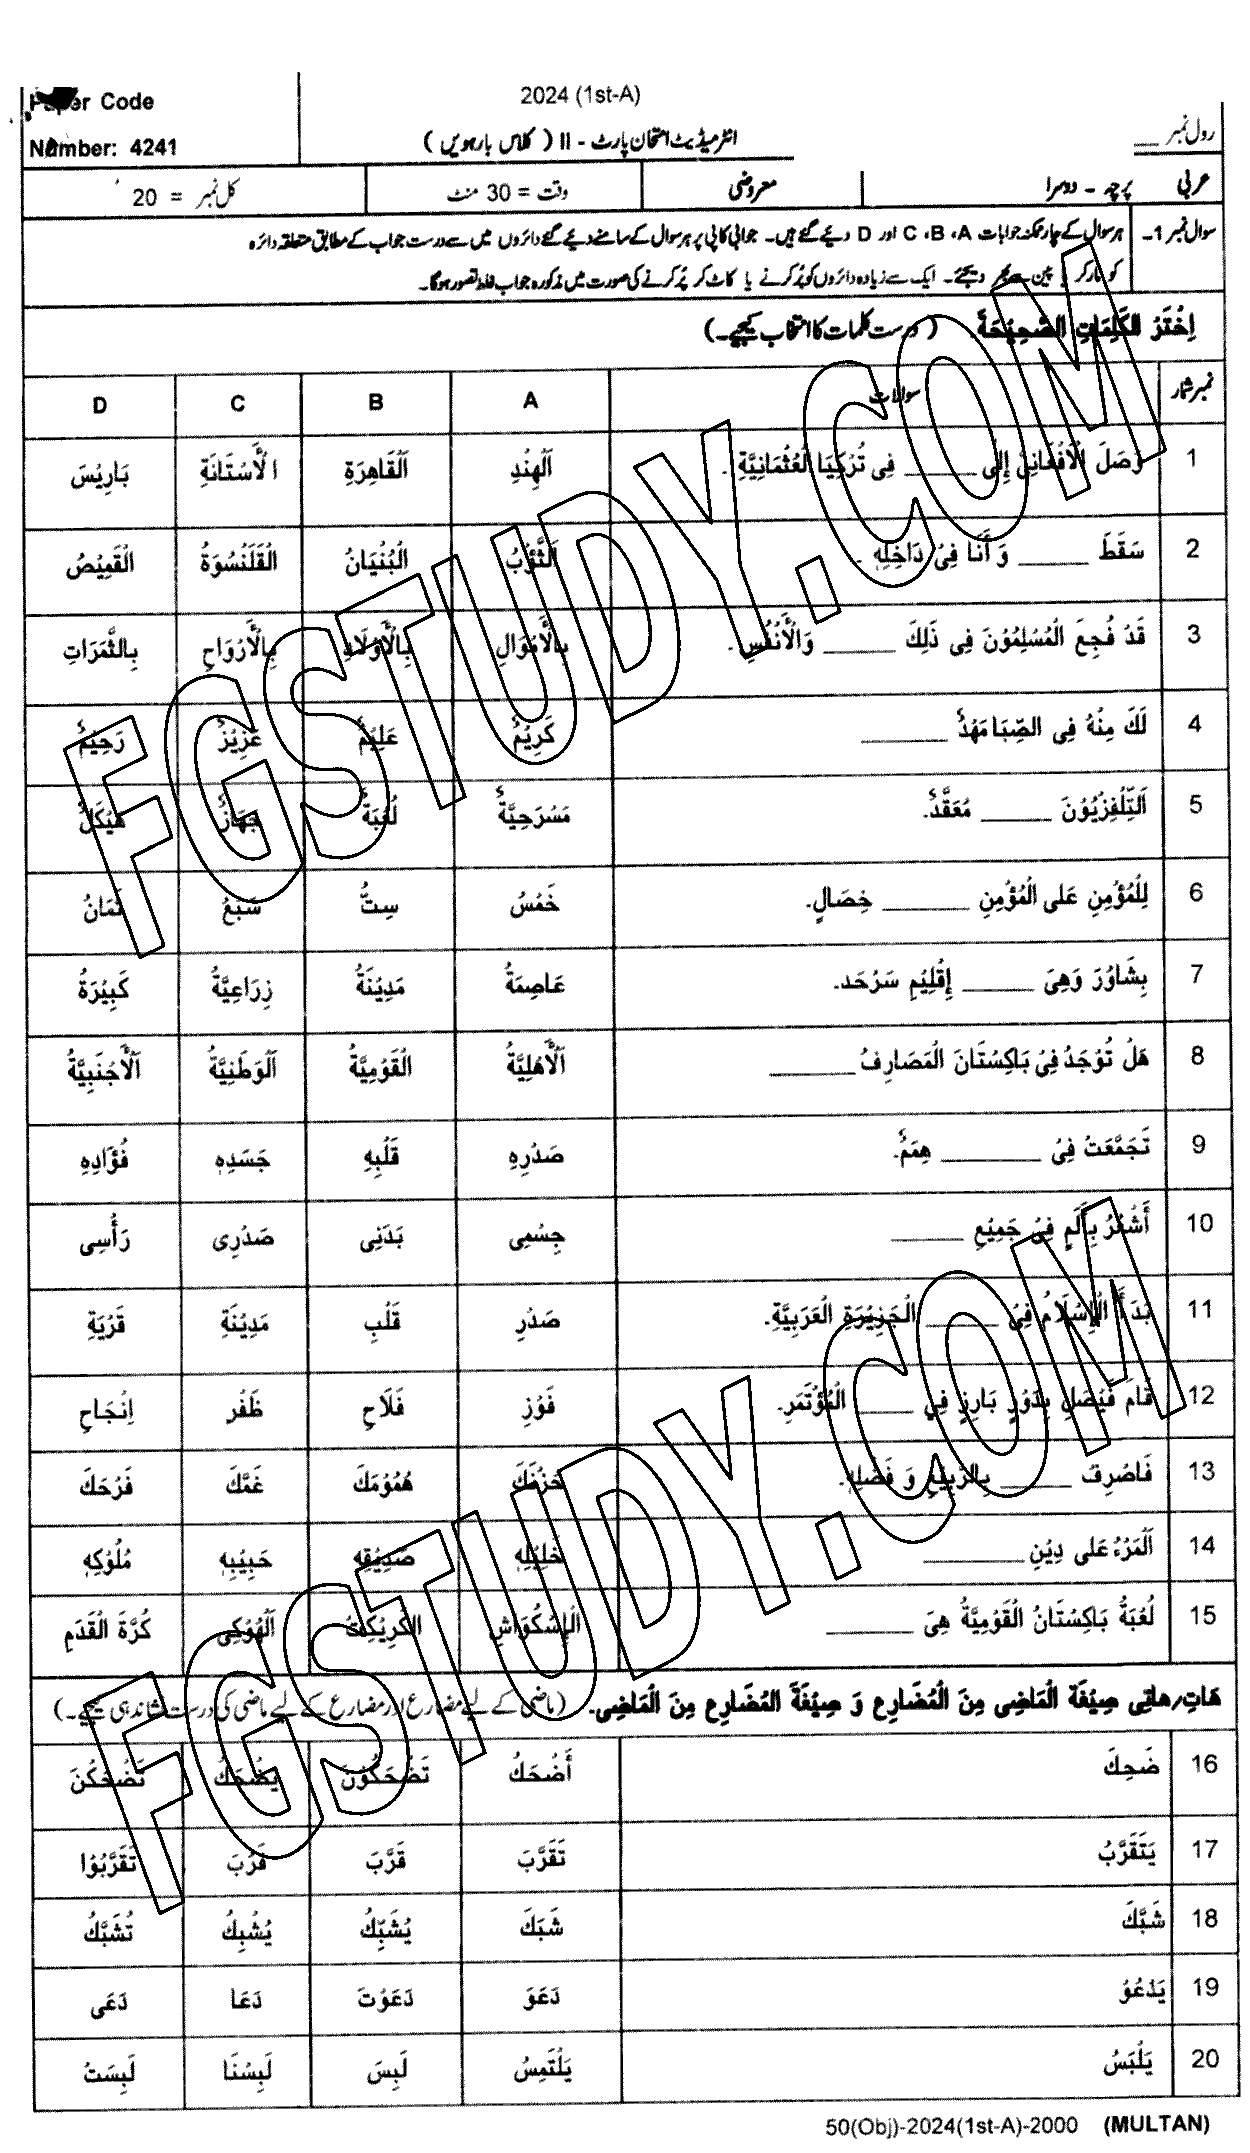 Paper Code
2024 (1st-A)
Number: 4241
انٹرمیڈیٹ امتحان پارٹ - II ( کلاس بارہویں )
رول نمبر __
عربی پرچہ - دوسرا معروضی وقت = 30 منٹ کل نمبر = 20
سوال نمبر 1۔ ہر سوال کے چار ممکنہ جوابات A، B، C اور D دیئے گئے ہیں۔ جوابی کاپی پر ہر سوال کے سامنے دیئے گئے دائروں میں سے درست جواب کے مطابق متعلقہ دائرہ
کو مارکر یا پین سے بھر دیجئے۔ ایک سے زیادہ دائروں کو پُر کرنے یا کاٹ کر پُر کرنے کی صورت میں مذکورہ جواب غلط تصور ہوگا۔
اِخْتَرُ الْكَلِمَاتِ الصَّحِيْحَةَ۔ ( درست کلمات کا انتخاب کیجیے۔)
نمبر شمار سوالات A B C D
1 وَصَلَ الْأَفْغَانِیْ إِلٰی ______ فِی تُرْکِیَا الْعُثْمَانِیَّةِ۔ اَلْهِنْدِ اَلْقَاهِرَةِ الْأَسْتَانَةِ بَارِیْسَ
2 سَقَطَ ______ وَ أَنَا فِیْ دَاخِلِهٖ۔ اَلثَّوْبُ الْبُنْیَانُ الْقَلَنْسُوَةُ الْقَمِیْصُ
3 قَدْ فُجِعَ الْمُسْلِمُوْنَ فِی ذَلِكَ ______ وَالْأَنْفُسِ۔ بِالْأَمْوَالِ بِالْأَوْلَادِ بِالْأَرْوَاحِ بِالثَّمَرَاتِ
4 لَكَ مِنْهُ فِی الصِّبَا مَهْدٌ ______ كَرِیْمٌ عَلِیْمٌ عَزِیْزٌ رَحِیْمٌ
5 اَلتِّلْفِزْیُوْنَ ______ مُعَقَّدٌ۔ مَسْرَحِیَّةٌ لُعْبَةٌ جِهَازٌ هَیْكَلٌ
6 لِلْمُؤْمِنِ عَلَی الْمُؤْمِنِ ______ خِصَالٍ۔ خَمْسُ سِتُّ سَبْعُ ثَمَانُ
7 بِشَاوُرَ وَهِیَ ______ إِقْلِیْمِ سَرْحَد۔ عَاصِمَةُ مَدِیْنَةُ زِرَاعِیَّةُ كَبِیْرَةُ
8 هَلْ تُوْجَدُ فِیْ بَاكِسْتَانَ الْمَصَارِفُ ______ اَلْأَهْلِیَّةُ الْقَوْمِیَّةُ اَلْوَطَنِیَّةُ اَلْأَجْنَبِیَّةُ
9 تَجَمَّعَتْ فِیْ ______ هِمَمٌ۔ صَدْرِهِ قَلْبِهِ جَسَدِهِ فُؤَادِهِ
10 أَشْعُرُ بِأَلَمٍ فِیْ جَمِیْعِ ______ جِسْمِی بَدَنِی صَدْرِی رَأْسِی
11 بَدَأَ الْإِسْلَامُ فِیْ ______ الْجَزِیْرَةِ الْعَرَبِیَّةِ۔ صَدْرِ قَلْبِ مَدِیْنَةِ قَرْیَةِ
12 قَامَ فَیْصَلِ بِدَوْرٍ بَارِزٍ فِی ______ الْمُؤْتَمَرِ۔ فَوْزِ فَلَاحِ ظَفْرِ اِنْجَاحِ
13 فَاصْرِفْ ______ بِالرَّبِیْعِ وَ فَضْلِهٖ۔ حَزْنَكَ هُمُوْمَكَ غَمَّكَ فَرْحَكَ
14 اَلْمَرْءُ عَلٰی دِیْنِ ______ خَلِیْلِهٖ صَدِیْقِهٖ حَبِیْبِهٖ مُلُوْكِهٖ
15 لُعْبَةُ بَاكِسْتَانُ الْقَوْمِیَّةُ هِیَ ______ الْإِسْكَوَاشِ الْكَرِیْكِتْ اَلْهُوْكِی كُرَّةَ الْقَدَمِ
هَاتِ؍هَاتِی صِیْغَةَ الْمَاضِی مِنَ الْمُضَارِعِ وَ صِیْغَةَ الْمُضَارِعِ مِنَ الْمَاضِی۔ (ماضی کے لیے مضارع اور مضارع کے لیے ماضی کی درست نشاندہی کیجیے۔)
16 ضَحِكَ أَضْحَكُ تَضْحَكُوْنَ یَضْحَكُ تَضْحَكْنَ
17 یَتَقَرَّبُ تَقَرَّبَ قَرَّبَ قَرُبَ تَقَرَّبُوْا
18 شَبَّكَ شَبَكَ یُشَبِّكُ یُشْبِكُ تُشَبَّكُ
19 یَدْعُوْ دَعَوَ دَعَوْتَ دَعَا دَعَی
20 یَلْبَسُ یَلْتَمِسُ لَبِسَ لَبِسْنَا لَبِسَتْ
50(Obj)-2024(1st-A)-2000 (MULTAN)
FGSTUDY.COM
FGSTUDY.COM